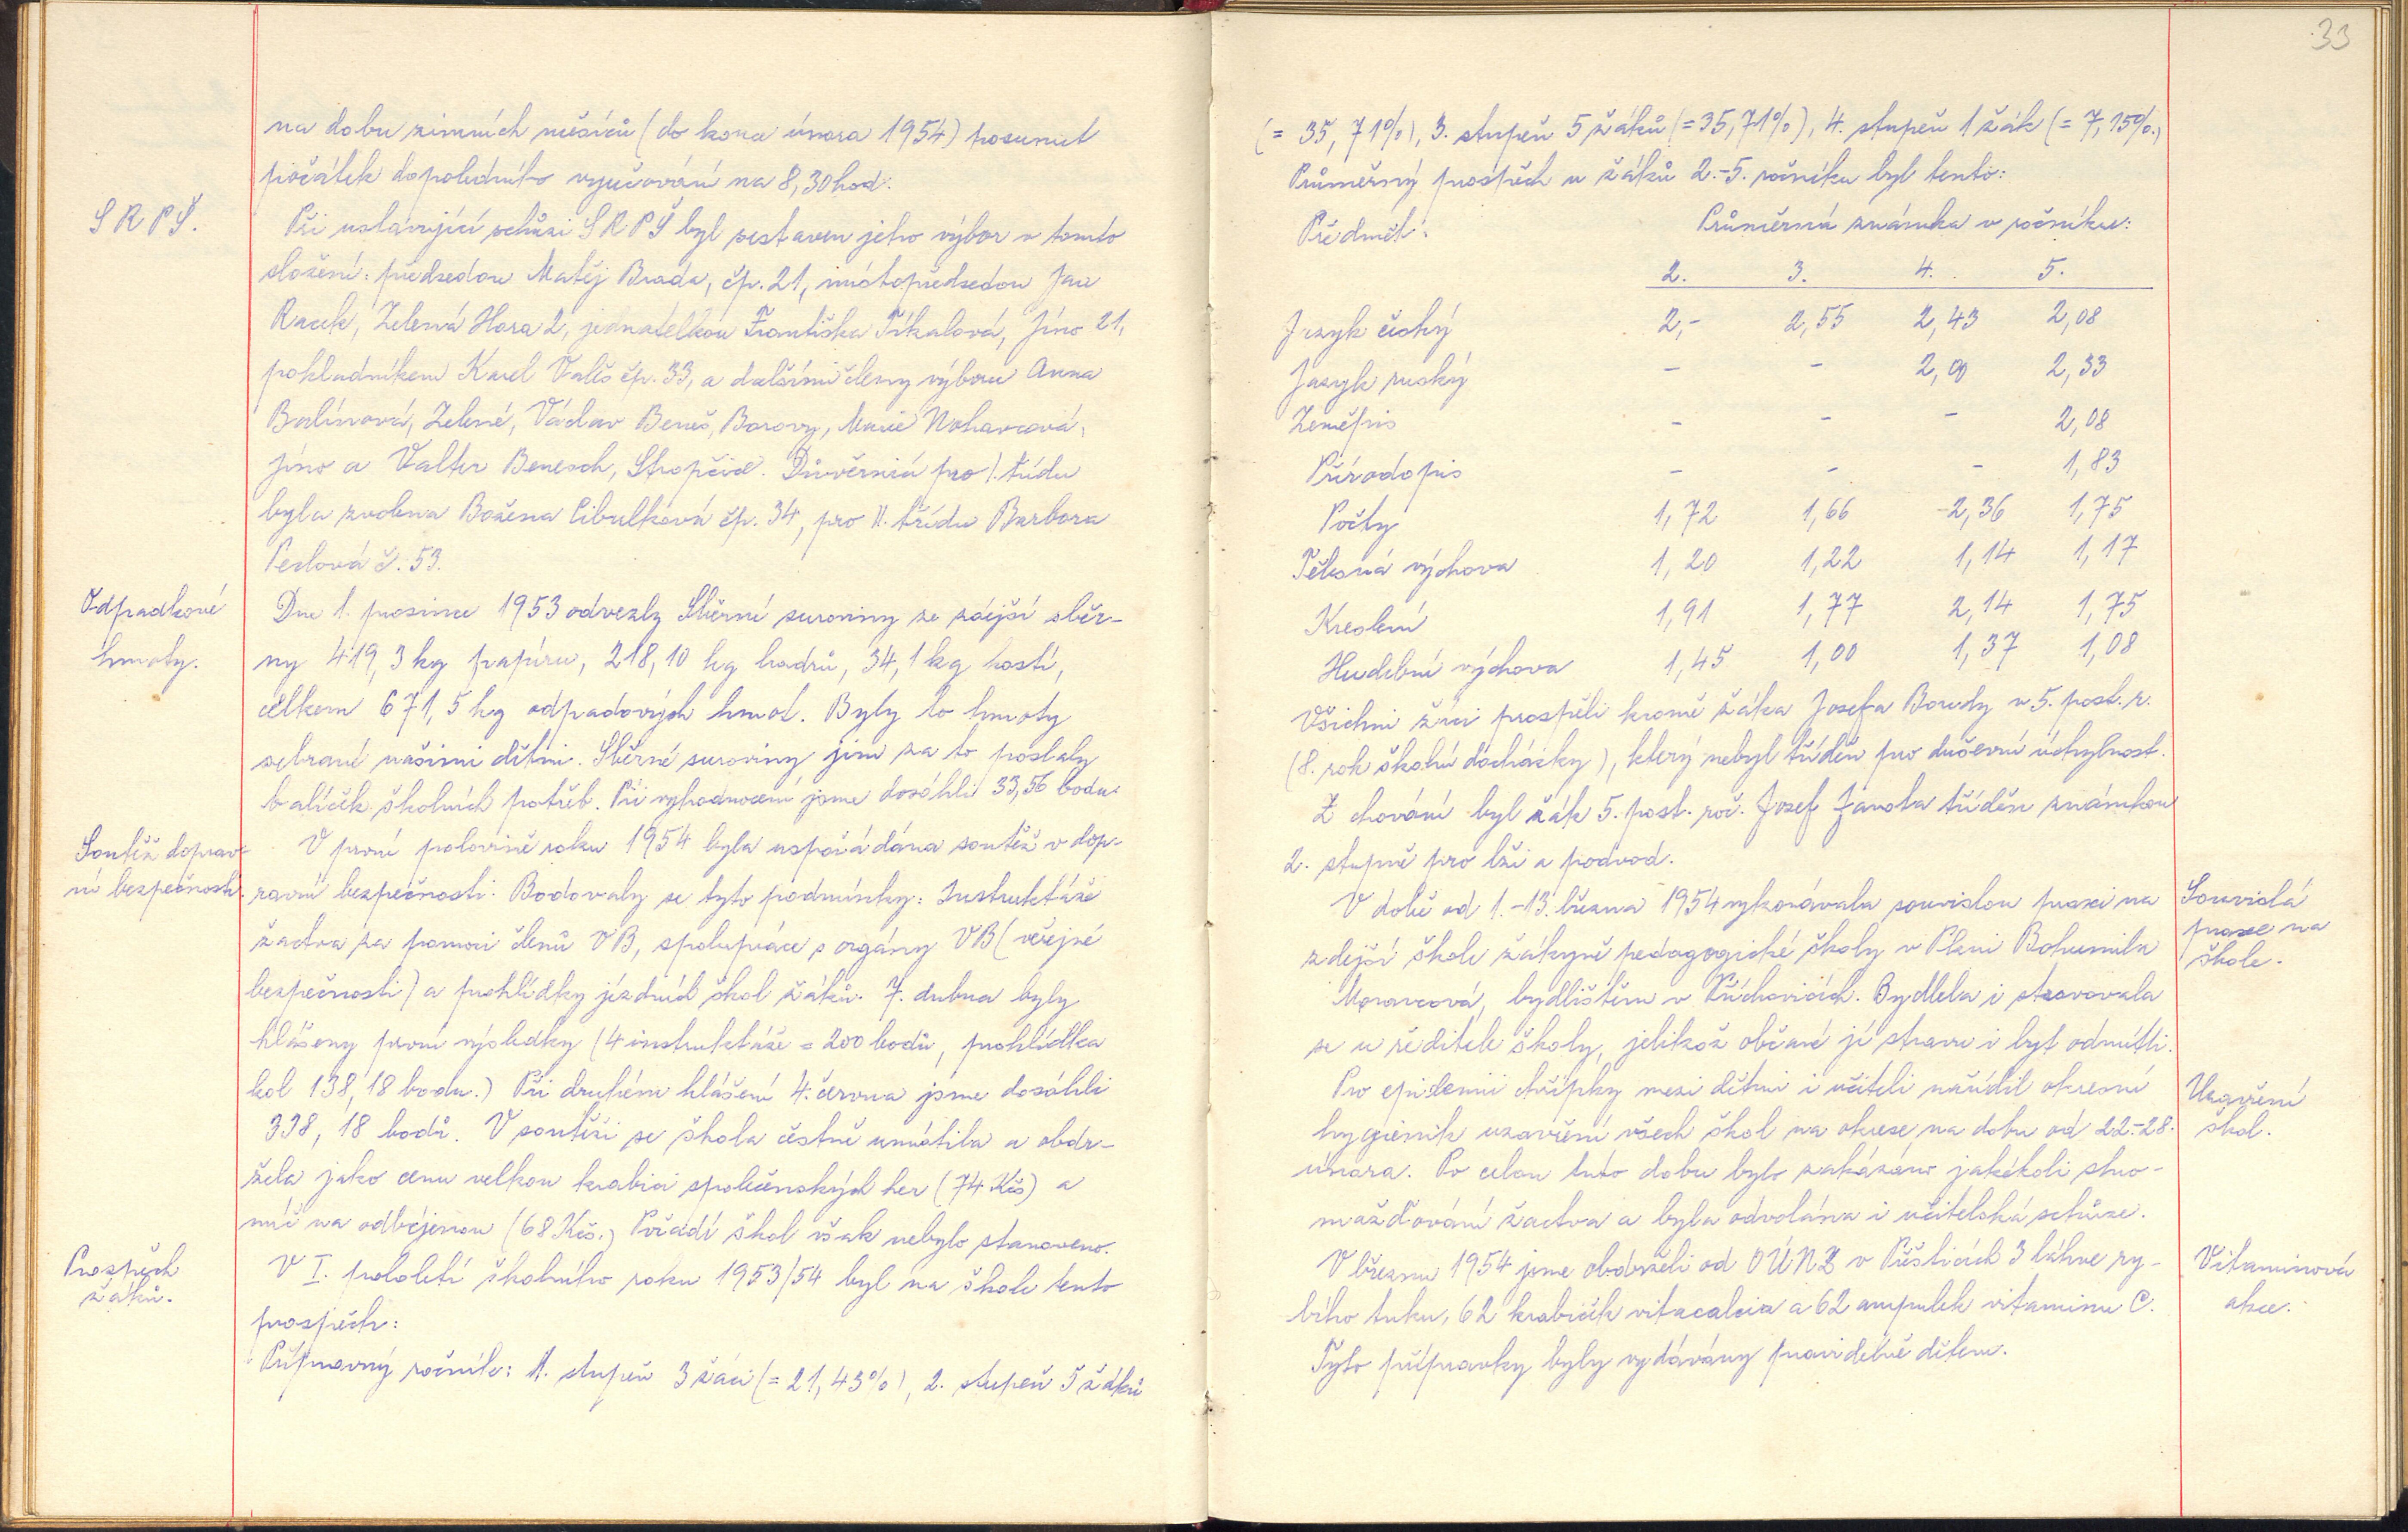 na dobu zimních měsíců (do konce února 1954) posunut
počátek dopoledního vyučování na 8,30 hod.
S R P Š.
Při ustavující schůzi SRPŠ byl sestaven jeho výbor v tomto
složení: předsedou Matěj Brada, čp. 21, místopředsedou Jan
Racek, Zelená Hora 2, jednatelkou Františka Tikalová, Jíno 21,
pokladníkem Karel Valeš čp. 33, a dalšími členy výboru Anna
Balínová, Zelené, Václav Beneš, Borovy, Marie Nohavcová,
Jíno a Valter Benesch, Stropčice. Důvěrnicí pro I. třídu
byla zvolena Božena Cibulková čp. 34, pro II. třídu Barbora
Peclová č. 53.
Odpadkové
hmoty.
Dne 1. prosince 1953 odvezly Sběrné suroviny ze zdejší sběr-
ny 419,3 kg papíru, 218,10 kg hadrů, 34,1 kg kostí,
celkem 671,5 kg odpadových hmot. Byly to hmoty
sebrané našimi dětmi. Sběrné suroviny jim za to poslaly
balíček školních potřeb. Při vyhodnocení jsme dosáhli 33,56 bodu.
Soutěž doprav-
ní bezpečnosti.
V první polovině roku 1954 byla uspořádána soutěž v dop-
ravní bezpečnosti. Bodovaly se tyto podmínky: Instruktáže
žactva za pomoci členů VB, spolupráce s orgány VB (veřejné
bezpečnosti) a prohlídky jízdních kol žáků. 7. dubna byly
hlášeny první výsledky (4 instruktáže = 200 bodů, prohlídka
kol 138,18 bodu.) Při druhém hlášení 4. června jsme dosáhli
338,18 bodů. V soutěži se škola čestně umístila a obdr-
žela jako cenu velkou krabici společenských her (74 Kčs) a
míč na odbíjenou (68 Kčs.) Pořadí škol však nebylo stanoveno.
Prospěch
žáků.
V I. pololetí školního roku 1953/54 byl na škole tento
prospěch:
Přípravný ročník: 1. stupeň 3 žáci (= 21,43%), 2. stupeň 5 žáků
33
(= 35,71%), 3. stupeň 5 žáků (= 35,71%), 4. stupeň 1 žák (= 7,15%.)
Průměrný prospěch u žáků 2.-5. ročníku byl tento:
Předmět: Průměrná známka v ročníku:
2. 3. 4. 5.
Jazyk český 2,- 2,55 2,43 2,08
Jazyk ruský - - 2,00 2,33
Zeměpis - - - 2,08
Přírodopis - - - 1,83
Počty 1,72 1,66 2,36 1,75
Tělesná výchova 1,20 1,22 1,14 1,17
Kreslení 1,91 1,77 2,14 1,75
Hudební výchova 1,45 1,00 1,37 1,08
Všichni žáci prospěli kromě žáka Josefa Boudy v 5. post. r.
(8. rok školní docházky), který nebyl tříděn pro duševní úchylnost.
Z chování byl žák 5. post. roč. Josef Janota tříděn známkou
2. stupně pro lži a podvod.
V době od 1.-13. března 1954 vykonávala souvislou praxi na
zdejší škole žákyně pedagogické školy v Plzni Bohumila
Moravcová, bydlištěm v Příchovicích. Bydlela i stravovala
se u ředitele školy, jelikož občané jí stravu i byt odmítli.
Souvislá
praxe na
škole.
Pro epidemii chřipky mezi dětmi i učiteli nařídil okresní
hygienik uzavření všech škol na okrese na dobu od 22.-28.
února. Po celou tuto dobu bylo zakázáno jakékoli shro-
mažďování žactva a byla odvolána i učitelská schůze.
Uzavření
škol.
V březnu 1954 jsme obdrželi od OÚNZ v Přešticích 3 láhve ry-
bího tuku, 62 krabiček vitacalcia a 62 ampulek vitaminu C.
Tyto přípravky byly vydávány pravidelně dětem.
Vitaminová
akce.